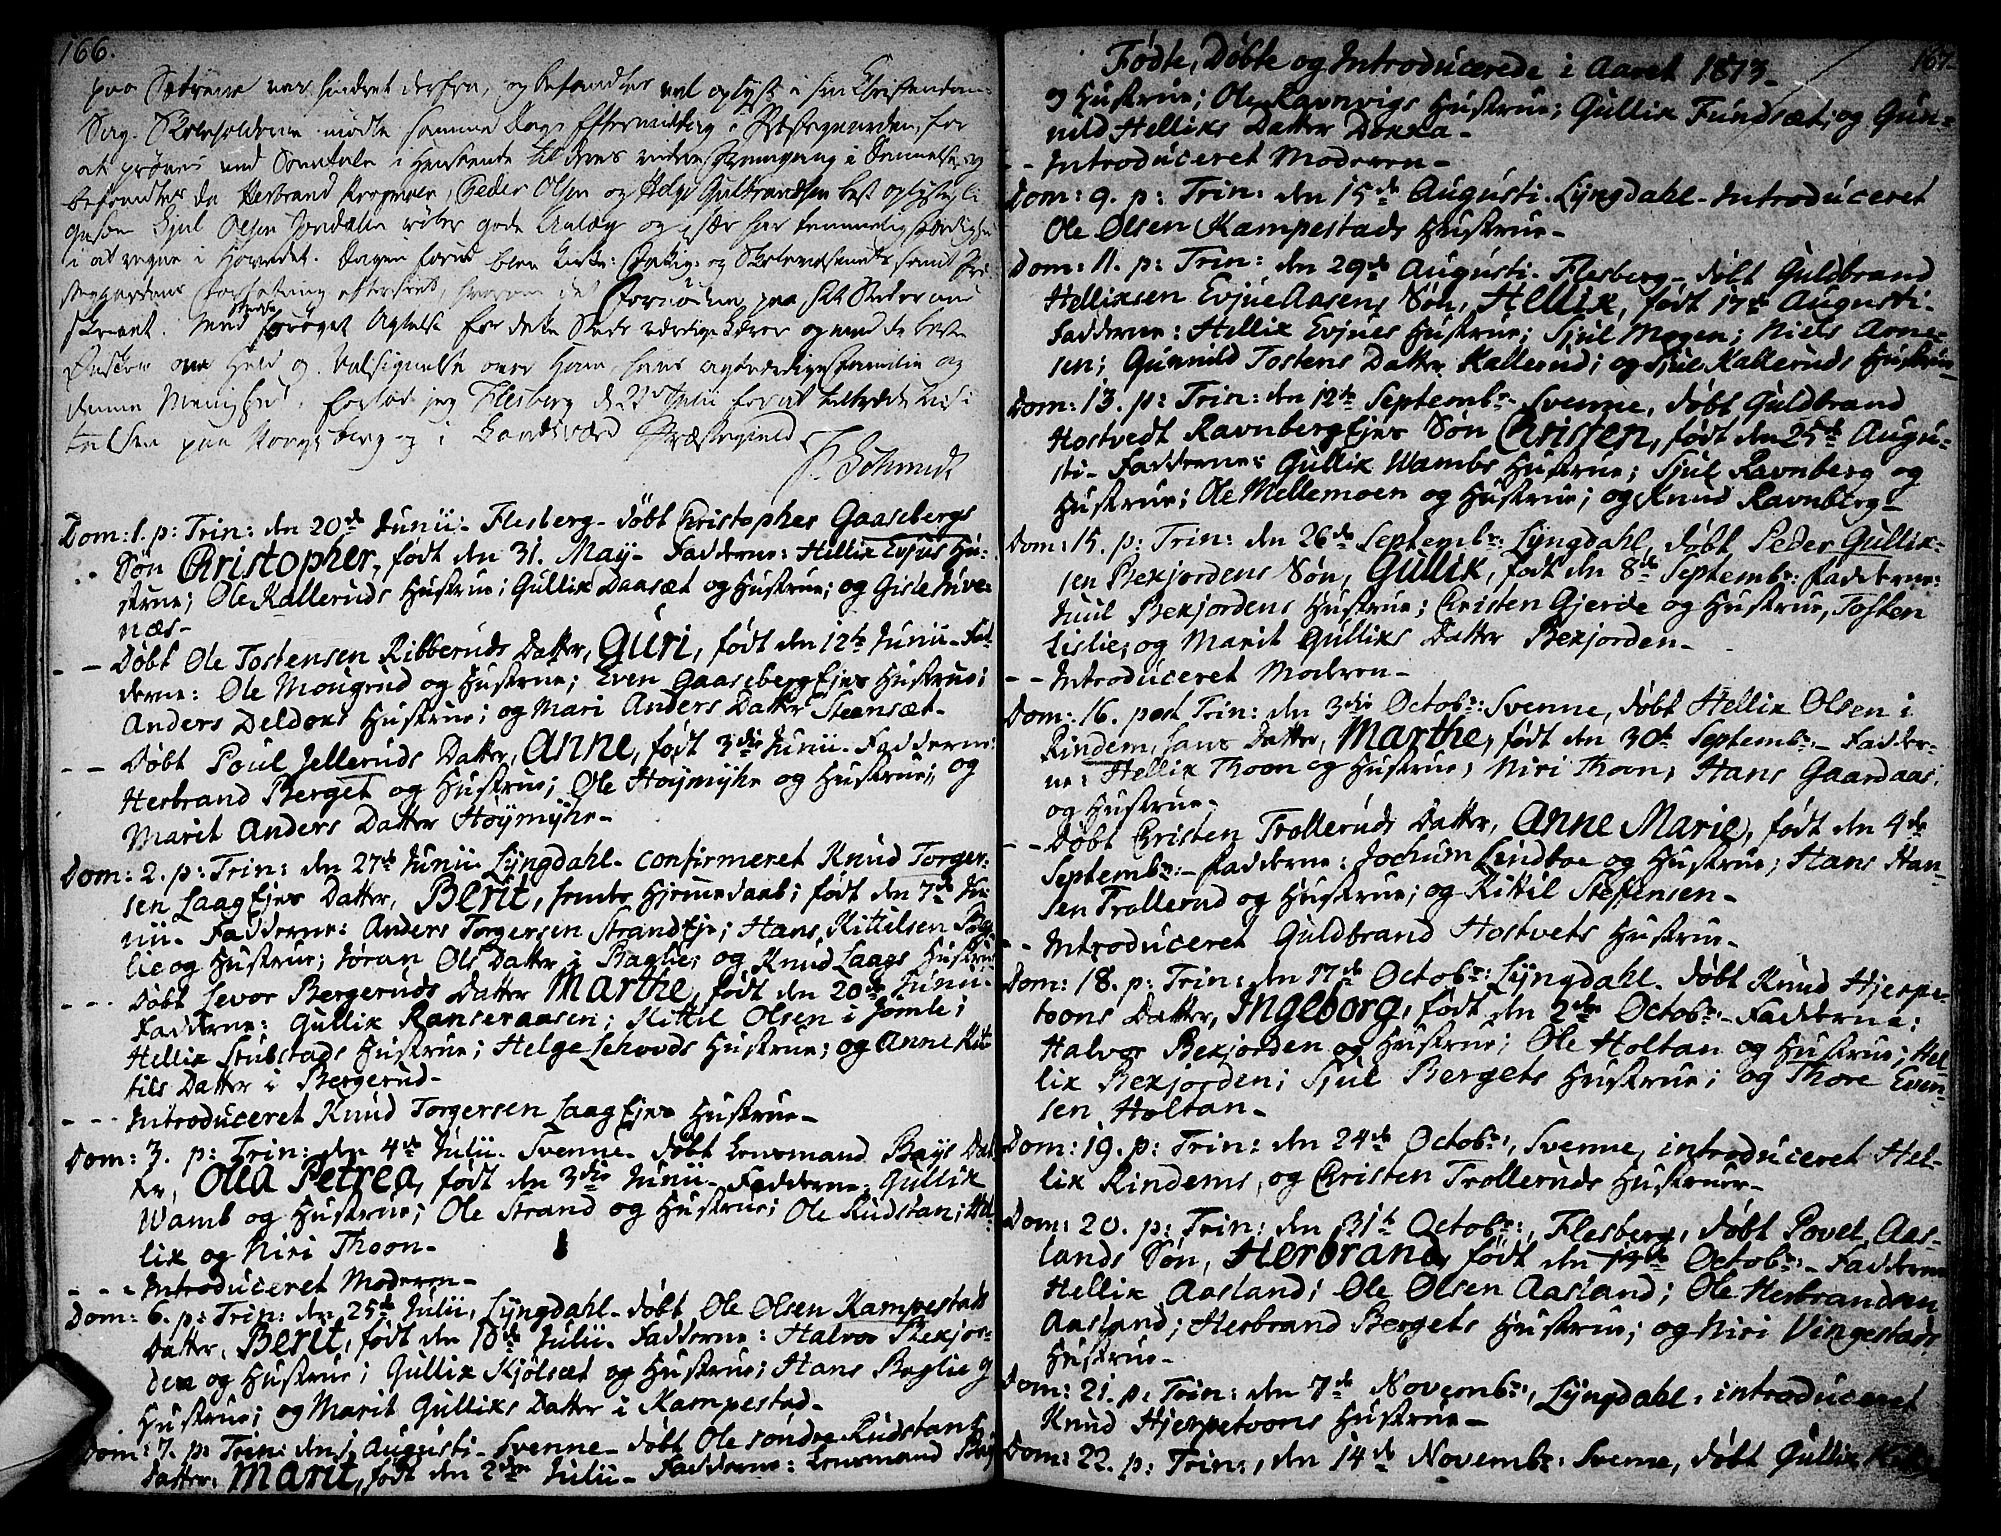 166.
paa Sætrene var hindret derfra, og befandtes vel oplyst i sin Christendom-
Sag. Skoleholderne mødte samme Dags Eftermiddag i Præstegaarden, for
at prøves ved Samtale i Henseende til deres videre Fremgang i Dannelse, og
befandtes da Herbrand Bergerie, Peder Olsen og Helge Gulbrandsen best oplyst, li-
gesom Gjul Olsen Jondalen røber gode Anlæg og især har temmelig Færdighed
i at regne i Hovedet. Dagen forud blev Kirke: Fattig: og Skolevæsenets samt Præ-
stegaardens Forfatning efterseet, hvorom det Fornødne paa sit Sted er an-
skrevet. Med forøget Agtelse for dette Steds værdige Lærer og med de beste
Ønsker om Held og Velsignelse over Ham, hans agtværdige Familie og
denne Menighed, forlod jeg Flesberg d. 22 Junii for at tiltræde Visi-
tatsen paa Kongsberg og i Sandsværd Præstegield.
F. Schmidt
Dom: 1. p: Trin: den 20de Junii. Flesberg- døbt Christopher Gaasebergs
Søn Christopher, født den 31. May- Fadderne: Hellik Evjus Hu-
strue; Ole Kalleruds Hustrue; Gullik Daasæt og Hustrue; og Gisle Juve-
næs-
- - Døbt Ole Tostensen Ribberuds Datter, Guri, født den 12te Junii- Fad-
derne: Ole Mougrud og Hustrue; Even GaasebergEjes Hustrue;
Anders Deldens Hustrue; og Mari Anders Datter Steensæt-
- - Døbt Poul Jelleruds Datter, Anne, født 3die Junii- Fadderne:
Herbrand Berget og Hustrue; Ole Høymyhr og Hustrue; og
Marit Anders Datter Høymyhr-
Dom: 2. p: Trin: den 27de Junii Lyngdahl- confirmeret Knud Torger-
sen LaagEjes Datter, Berit, hendes Hjemmedaab; født den 7de Ju-
nii- Fadderne: Anders Torgersen StrandEje; Hans Kittelsen Bag-
lie og Hustrue; Jøran Ols Datter i Baglie; og Knud Laags Hustrue
- - - Døbt Levor Bergeruds Datter Marthe, født den 20de Junii-
Fadderne: Gullik Ranseraasen; Kittil Olsen i Jømle;
Hellik Stubstads Hustrue; Helge Lehovds Hustrue; og Anne Kit-
tils Datter i Bergerud-
- - - Introduceret Knud Torgersen LaagEjes Hustrue-
Dom: 3. p: Trin: den 4de Julii- Svenne- døbt Lensmand Bays Dat-
ter, Olea Petrea, født den 3die Junii- Fadderne: Gullik
Wamb og Hustrue; Ole Strand og Hustrue; Ole Rudstan; Hel-
lik og Niri Thoon-
- - - Introduceret Moderen-
Dom: 6. p: Trin: den 25de Julii, Lyngdahl- døbt Ole Olsen Kampestads
Datter, Berit, født den 18de Julii- Fadderne: Halvor Bekjor-
den og Hustrue; Gullik Kjølsæt og Hustrue; Hans Baglie og
Hustrue; og Marit Gulliks Datter i Kampestad-
Dom: 7. p: Trin: den 1. Augusti- Svenne- døbt Ole søndre Rudstans
Datter: Marit, født den 2den Julii- Fadderne: Lensmand Bay
Fødte, Døbte og Introducerede i Aaret 1813-
167.
og Hustrue; Ole Ravnvigs Hustrue; Gullik Fundsæt; og Gun-
nild Helliks Datter Dokka-
- - Introduceret Moderen-
Dom: 9. p: Trin: den 15de Augusti. Lyngdahl- Introduceret
Ole Olsen Kampestads Hustrue-
Dom: 11. p: Trin: den 29de Augusti. Flesberg- døbt Guldbrand
Helliksen EvjueAasens Søn, Hellik, født 17de Augusti-
Fadderne: Hellik Evjues Hustrue; Sjul Mogen; Niels Arne-
sen; Gunnild Tostens Datter Kallerud; og Sjul Kalleruds Hustrue-
Dom: 13. p: Trin: den 12te Septembr: Svenne, døbt Guldbrand
Hostvedt RavnbergEjes Søn Christen, født den 25de Augu-
sti- Fadderne: Gullik Wambs Hustrue; Sjul Ravnberg og
Hustrue; Ole Mellemoen og Hustrue; og Knud Ravnberg-
Dom: 15. p: Trin: den 26de Septembr: Lyngdahl, døbt Peder Gullik-
sen Bekjordens Søn, Gullik, født den 8de Septembr: Fadderne:
Juul Bekjordens Hustrue; Christen Gjerde og Hustrue, Tosten
Lislie; og Marit Gulliks Datter Bekjorden-
- - Introduceret Moderen-
Dom: 16. post Trin: den 3die Octobr: Svenne, døbt Hellik Olsen i
Rindem, hans Datter, Marthe, født den 30te Septembr:- Fadder-
ne: Hellik Thoon og Hustrue; Niri Thoon; Hans Gaardaas
og Hustrue-
- - Døbt Christen Trolleruds Datter, Anne Marie, født den 4de
Septembr:- Fadderne: Jochum Lindboe og Hustrue; Hans Han-
sen Trollerud og Hustrue; og Kittil Steffensen-
- - Introduceret Guldbrand Hostvets Hustrue-
Dom: 18. p: Trin: den 17de Octobr: Lyngdahl. døbt Knud Hjerpe-
toons Datter, Ingeborg, født den 2den Octobr:- Fadderne:
Halvor Bekjorden og Hustrue; Ole Holtan og Hustrue; Hel-
lik Bekjorden; Sjul Bergets Hustrue; og Thore Even-
sen Holtan-
Dom: 19. p: Trin: den 24de Octobr:, Svenne, introduceret Hel-
lik Rindems, og Christen Trolleruds Hustruer-
Dom: 20. p: Trin: den 31te Octobr:, Flesberg, døbt Povel Aas-
lands Søn, Herbrand, født den 14de Octobr:- Fadderne
Hellik Aasland; Ole Olsen Aasland; Ole Herbrandsen
Aasland; Herbrand Bergets Hustrue; og Niri Vingestads
Hustrue-
Dom: 21. p: Trin: den 7de Novembr:, Lyngdahl, introduceret
Knud Hjerpetoons Hustrue-
Dom: 22. p: Trin:, den 14de Novembr: Svenne, døbt Gullik